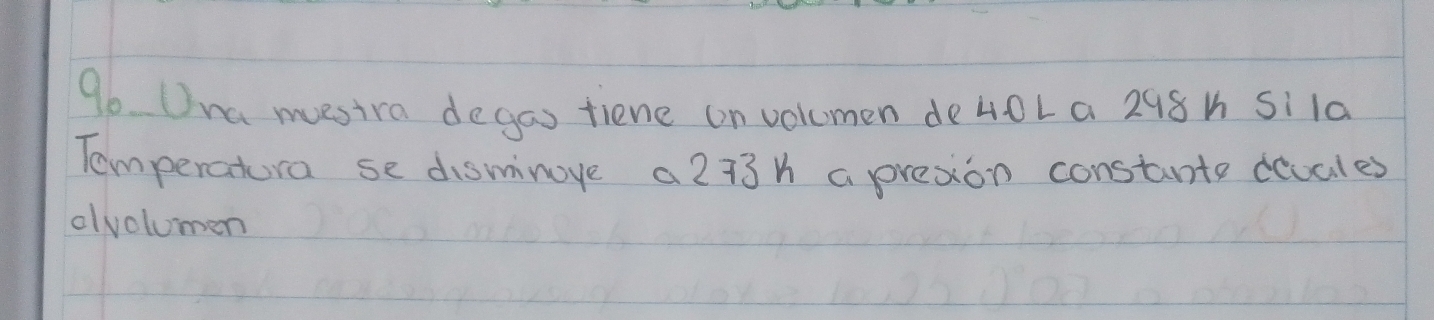 9o_ Una muestra de gas tiene un volumen de 40L a 298 K Si la
Temperatura se disminuye a 273 K a presión constante ¿cuál es
el volumen